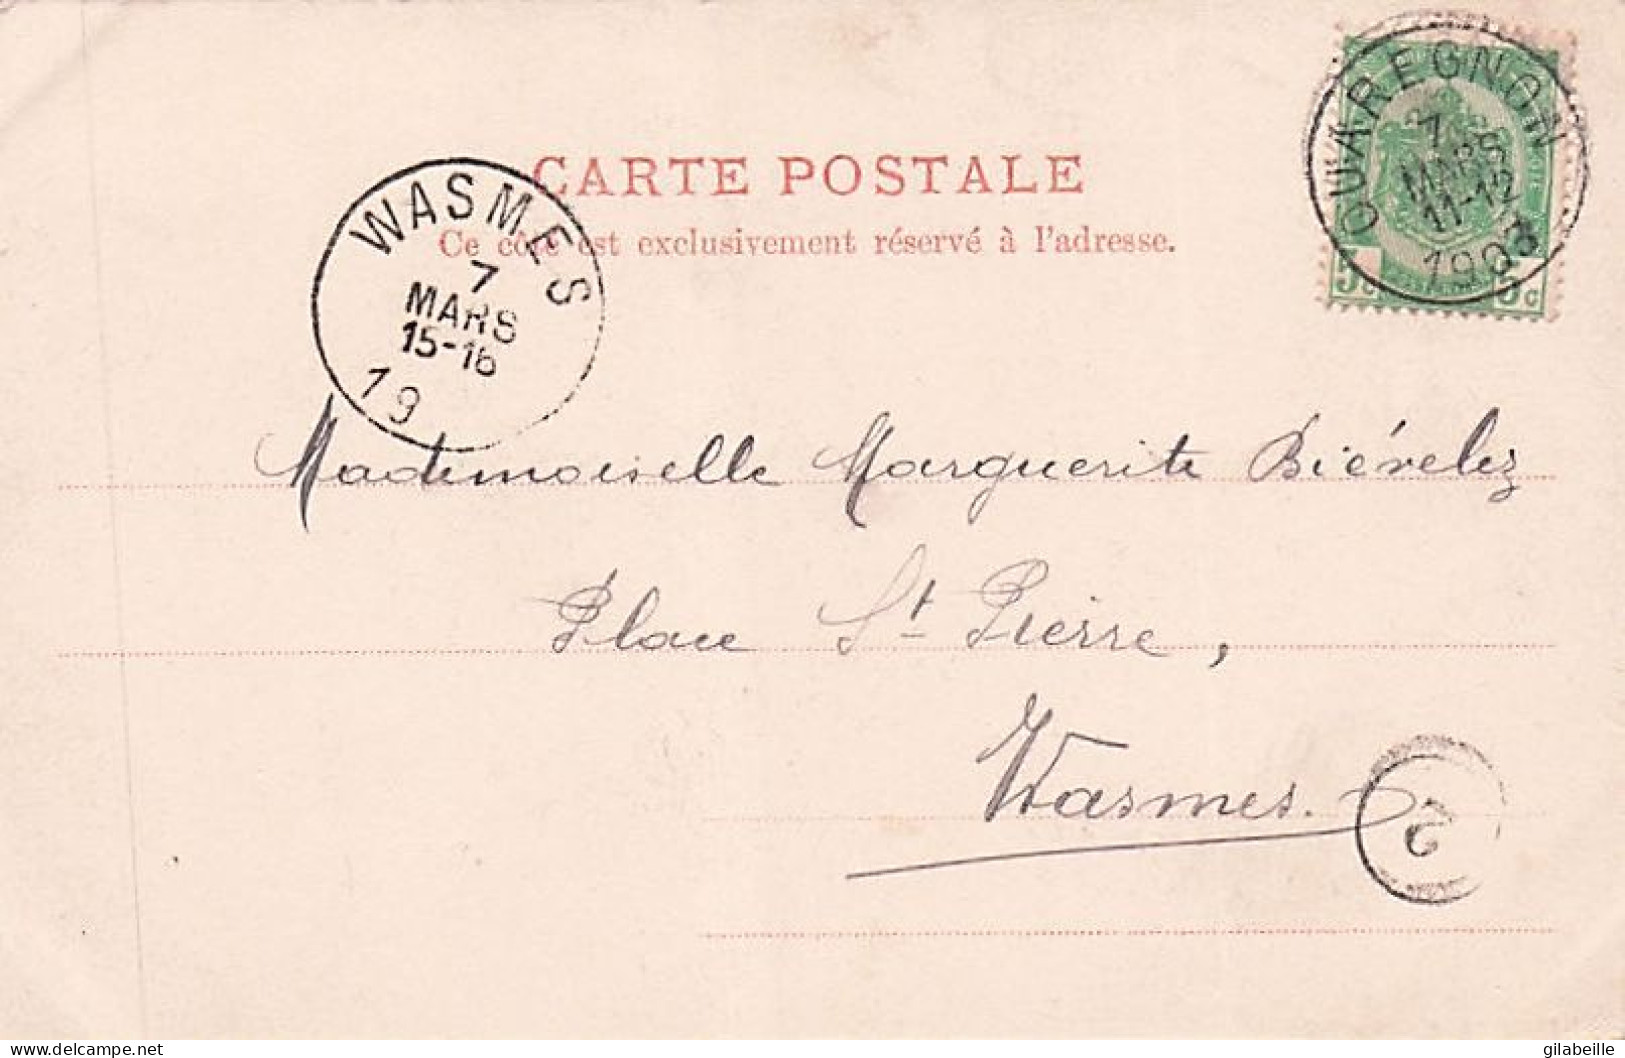 CARTE POSTALE
Ce côté est exclusivement réservé à l'adresse.
WASMES
7
MARS
15-16
19
QUAREGNON
7
MARS
11-12
1903
5c 5c
Mademoiselle Marguerite Biévelez
Place St Pierre,
Wasmes.
2
gilabeille